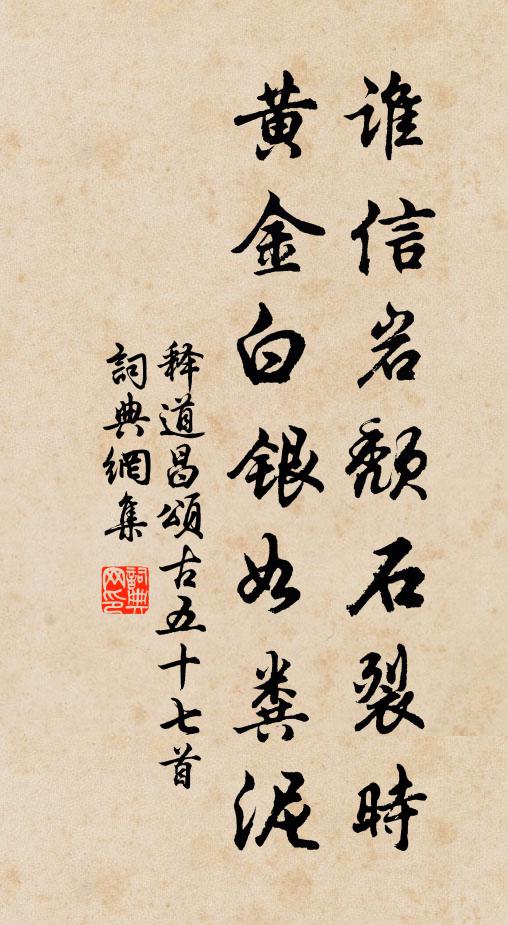 谁信岩颓石裂時
黄金白銀如糞泥
释道昌頌古五十七首
詞典網集
詞典
网印